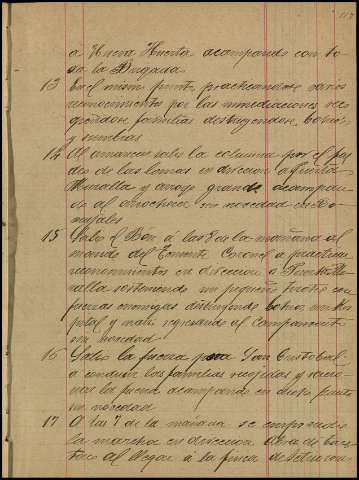 a Nueva Huerta acampando con to-
da la Brigada
13 En el mismo punto practicandose varios
reconocimientos por las inmediaciones re-
giendose familias destruyendose bohios
y siembras
14 Al amanecer salio la columna por el
deo de las lomas en direccion a
Muralla y arroyo grande acampan-
do al anochecer sin novedad en
15 Salio el Bón á las 8 de la mañana al
mando del Teniente Coronel a practicar
reconocimientos en direccion a
sosteniendo un pequeño tiroteo con
fuerzas enemigas destruyendo bohios un Hos-
pital y regresando al campamento
sin novedad
16 Salio la fuerza para San Cristobal
a conducir las familias recojidas y racio-
nar la fuerza acampando en dicho punto
sin novedad
17 A las 7 de la mañana se emprende
la marcha en direccion
al llegar á la finca de